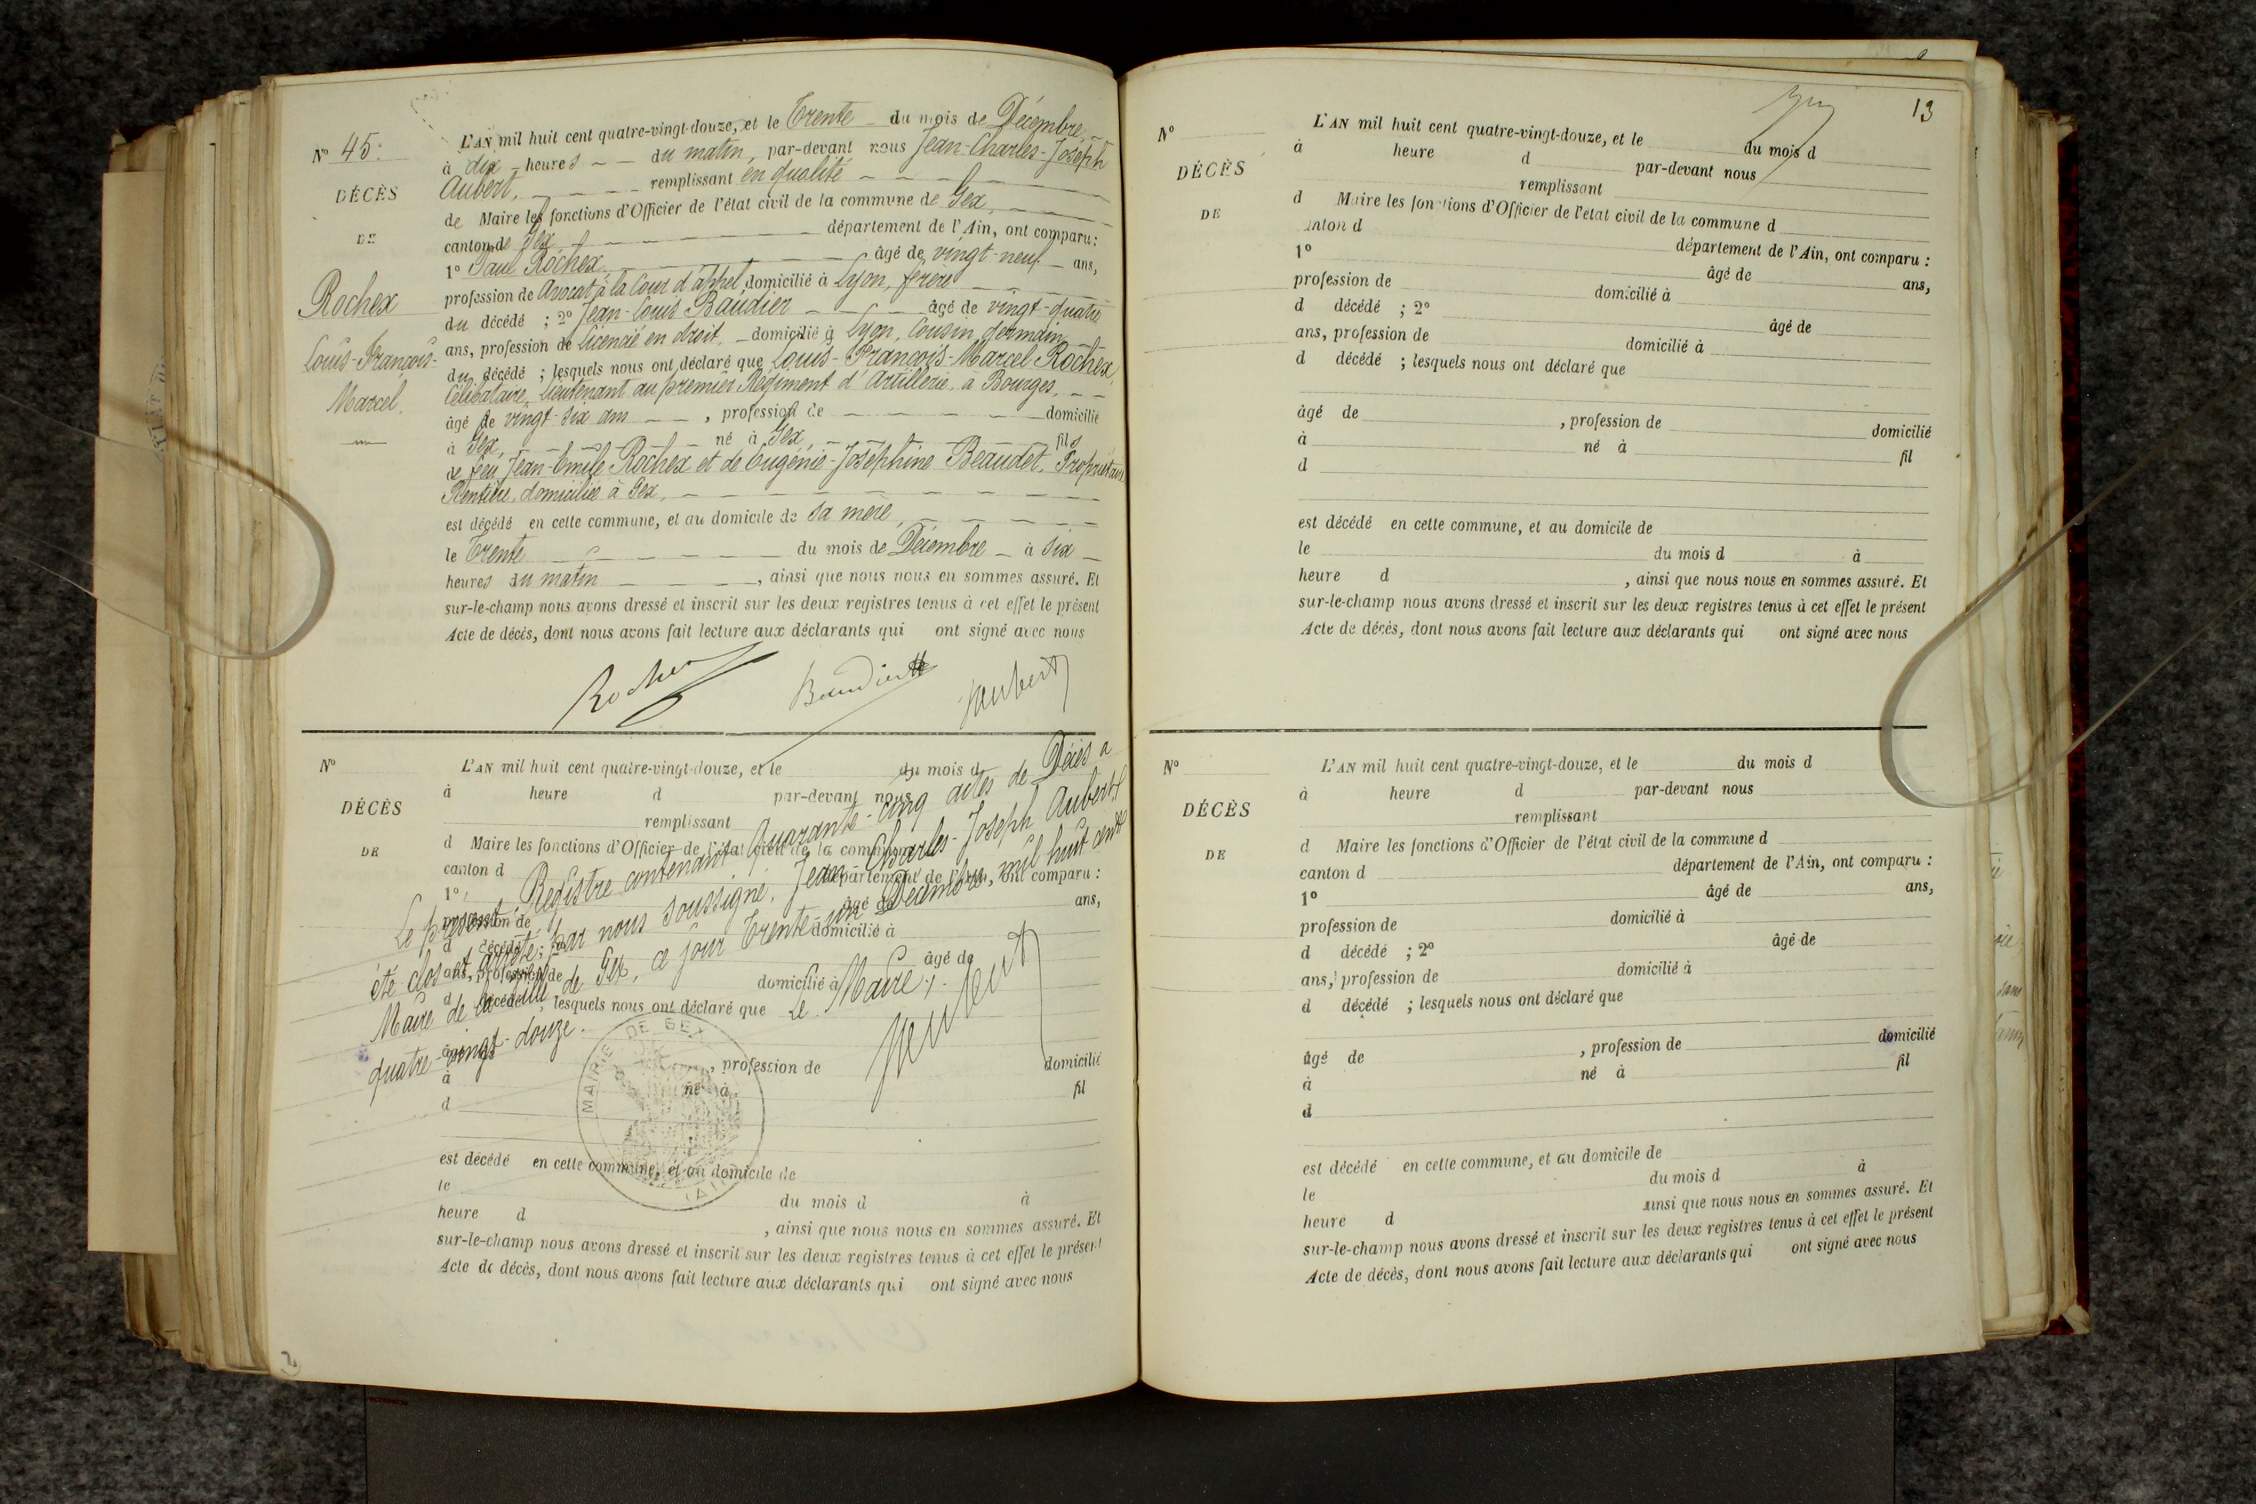 N° 45.
DÉCÈS
DE
Rochex
Louis-François-
Marcel.
L'AN mil huit cent quatre-vingt-douze, et le Trente du mois de Décembre,
à dix heures du matin, par-devant nous Jean-Charles-Joseph
Aubert, remplissant en qualité
de Maire les fonctions d'Officier de l'état civil de la commune de Gex,
canton de Gex, département de l'Ain, ont comparu :
1° Paul Rochex, âgé de vingt-neuf ans,
profession de Avocat à la Cour d'appel, domicilié à Lyon, frère
du décédé ; 2° Jean-Louis Baudier âgé de vingt-quatre
ans, profession de licencié en droit, domicilié à Lyon, Cousin germain
du décédé ; lesquels nous ont déclaré que Louis-François-Marcel Rochex,
Célibataire, Lieutenant au premier Régiment d'Artillerie, à Bourges,
âgé de vingt-six ans , profession de domicilié
à Gex, né à Gex, fils
de feu Jean-Emile Rochex et de Eugénie-Joséphine Beaudet, Propriétaire
Rentière, domiciliée à Gex,
est décédé en cette commune, et au domicile de sa mère,
le Trente du mois de Décembre à six
heures du matin , ainsi que nous nous en sommes assuré. Et
sur-le-champ nous avons dressé et inscrit sur les deux registres tenus à cet effet le présent
Acte de décès, dont nous avons fait lecture aux déclarants qui ont signé avec nous
Rochex Baudier Aubert
N°
DÉCÈS
DE
L'AN mil huit cent quatre-vingt-douze, et le du mois d
à heure d par-devant nous
remplissant
d Maire les fonctions d'Officier de l'état civil de la commune d
canton d département de l'Ain, ont comparu :
1° âgé de ans,
profession de domicilié à
d décédé ; 2° âgé de
ans, profession de domicilié à
d décédé ; lesquels nous ont déclaré que
âgé de , profession de domicilié
à né à fil
d
est décédé en cette commune, et au domicile de
le du mois d à
heure d , ainsi que nous nous en sommes assuré. Et
sur-le-champ nous avons dressé et inscrit sur les deux registres tenus à cet effet le présent
Acte de décès, dont nous avons fait lecture aux déclarants qui ont signé avec nous
Le présent Registre contenant Quarante-cinq actes de Décès a
été clos et arrêté par nous soussigné, Jean-Charles-Joseph Aubert,
Maire de la ville de Gex, ce jour Trente-un Décembre, mil huit cent
quatre-vingt-douze.
Le Maire,
Aubert
MAIRIE DE GEX
(AIN)
13
N°
DÉCÈS
DE
L'AN mil huit cent quatre-vingt-douze, et le du mois d
à heure d par-devant nous
remplissant
d Maire les fonctions d'Officier de l'état civil de la commune d
anton d département de l'Ain, ont comparu :
1° âgé de ans,
profession de domicilié à
d décédé ; 2° âgé de
ans, profession de domicilié à
d décédé ; lesquels nous ont déclaré que
âgé de , profession de domicilié
à né à fil
d
est décédé en cette commune, et au domicile de
le du mois d à
heure d , ainsi que nous nous en sommes assuré. Et
sur-le-champ nous avons dressé et inscrit sur les deux registres tenus à cet effet le présent
Acte de décès, dont nous avons fait lecture aux déclarants qui ont signé avec nous
N°
DÉCÈS
DE
L'AN mil huit cent quatre-vingt-douze, et le du mois d
à heure d par-devant nous
remplissant
d Maire les fonctions d'Officier de l'état civil de la commune d
canton d département de l'Ain, ont comparu :
1° âgé de ans,
profession de domicilié à
d décédé ; 2° âgé de
ans, profession de domicilié à
d décédé ; lesquels nous ont déclaré que
âgé de , profession de domicilié
à né à fil
d
est décédé en cette commune, et au domicile de
le du mois d à
heure d ainsi que nous nous en sommes assuré. Et
sur-le-champ nous avons dressé et inscrit sur les deux registres tenus à cet effet le présent
Acte de décès, dont nous avons fait lecture aux déclarants qui ont signé avec nous